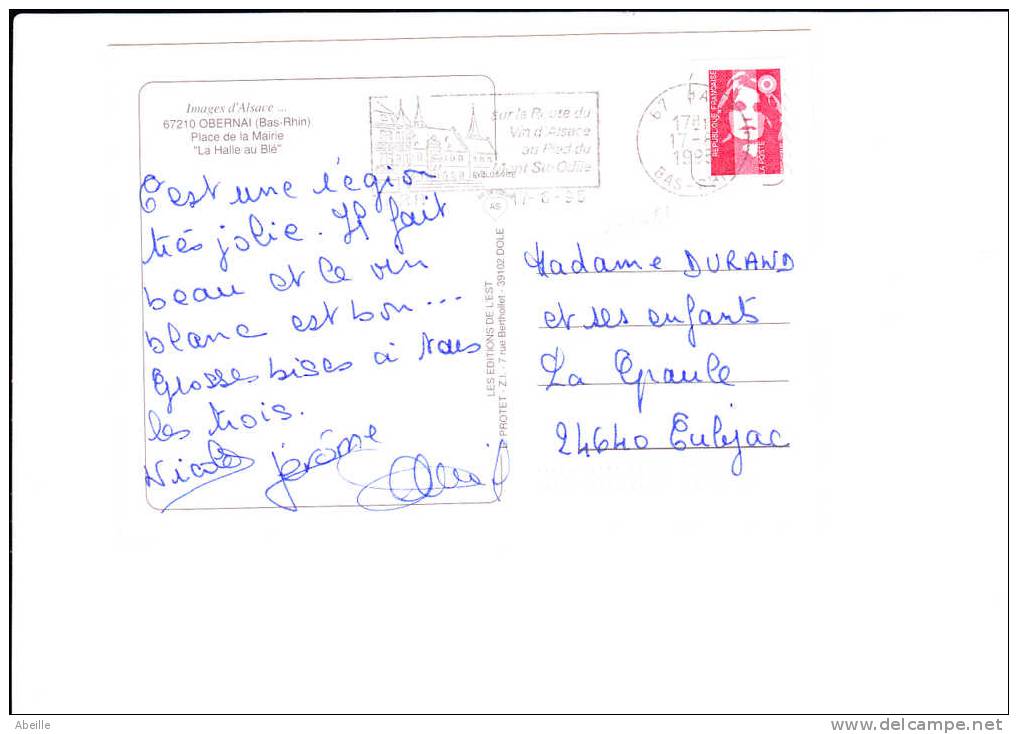 Images d'Alsace ...
67210 OBERNAI (Bas-Rhin)
Place de la Mairie
"La Halle au Blé"
C'est une région
très jolie. Il fait
beau et le vin
blanc est bon...
Grosses bises à vous
les trois.
Nicolas Jérôme
LES EDITIONS DE L'EST
PROTET - Z.I. - 7 rue Berthollet - 39102 DOLE
sur la Route du
Vin d'Alsace
au Pied du
Mont Ste-Odile
67
17
1995
BAS-RHIN
REPUBLIQUE FRANÇAISE
LA POSTE
Madame DURAND
et ses enfants
La Epaule
24640 Cubjac
Abeille
www.delcampe.net